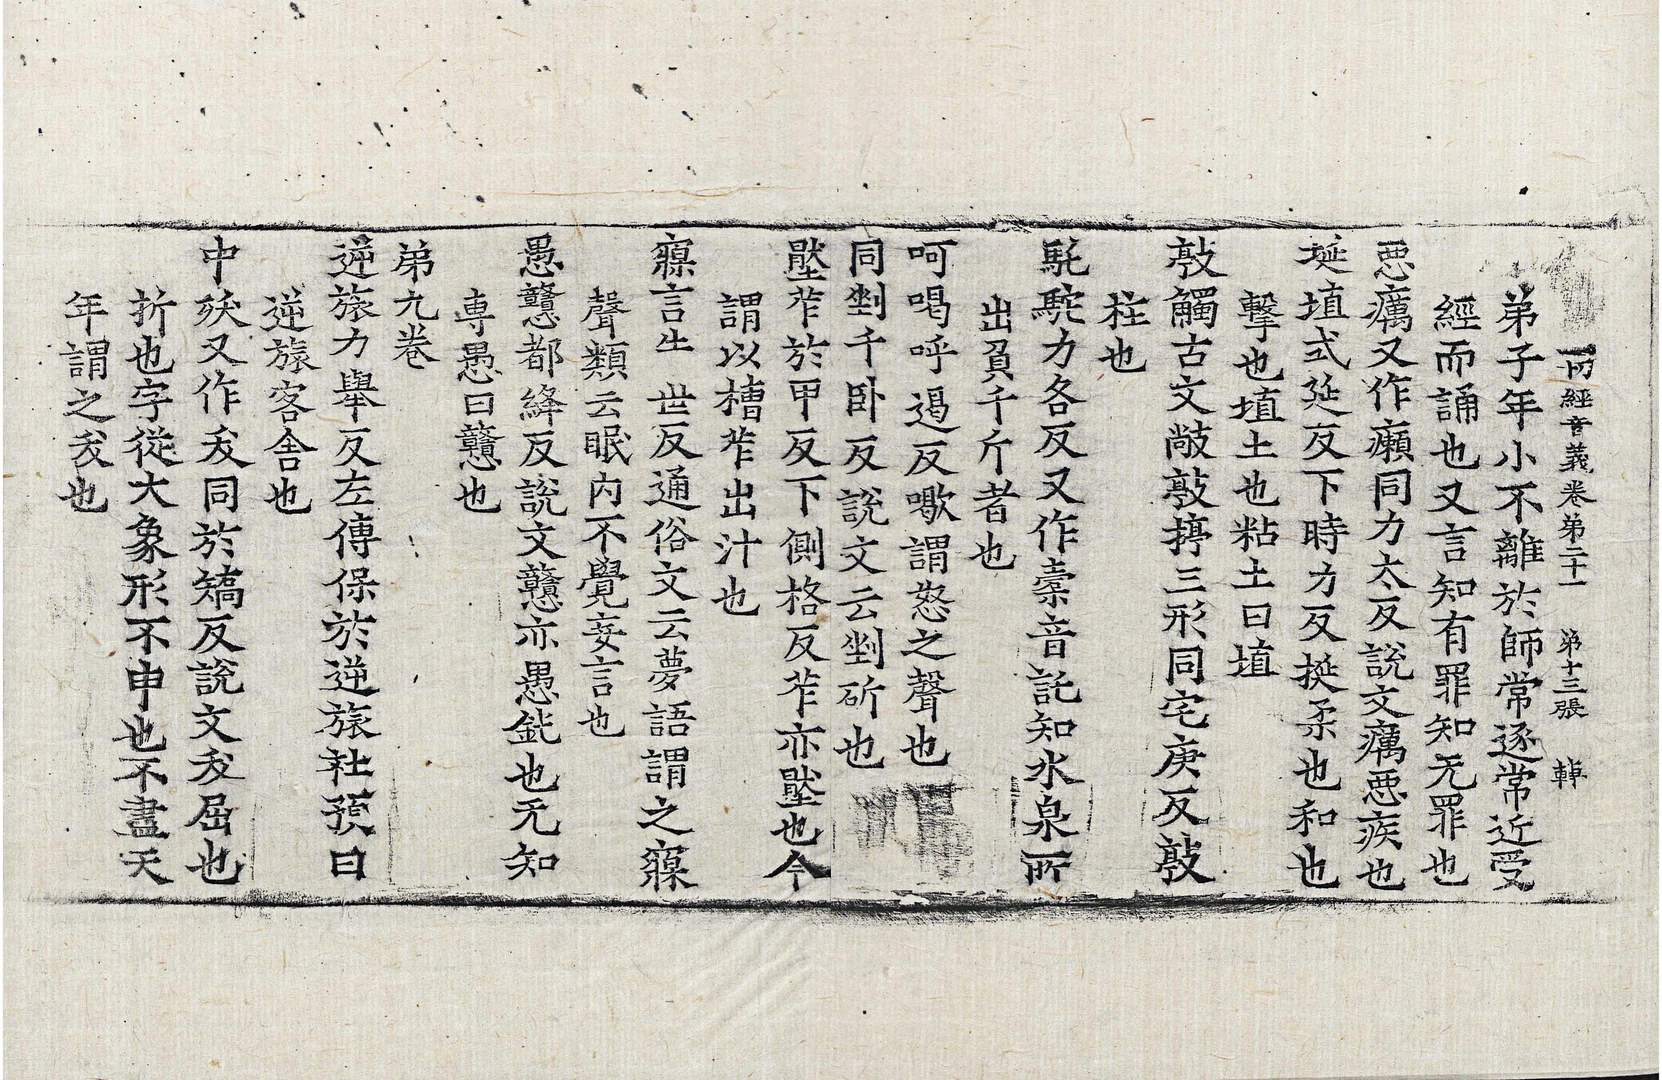 一切經音義卷第二十一 第十三張 𠦝
弟子年小不離於師常逐常近受
經而誦也又言知有罪知无罪也
惡癘又作癩同力太反說文癘惡疾也
埏埴式延反下時力反挻柔也和也
擊也埴土也粘土曰埴
敲觸古文敞敲揨三形同宅庚反敲
柱也
駞駝力各反又作橐音託知水泉所
出負千斤者也
呵喝呼遏反嘶謂怒之聲也
同剉千卧反說文云剉斫也
壓笮於甲反下側格反笮亦壓也今
謂以槽笮出汁也
寱言牛世反通俗文云夢語謂之寱
聲類云眠內不覺妄言也
愚戇都絳反說文戇亦愚鈍也无知
專愚曰戇也
弟九卷
逆旅力舉反左傳保於逆旅杜預曰
逆旅客舍也
中殀又作夭同於矯反說文夭屈也
折也字從大象形不申也不盡天
年謂之夭也